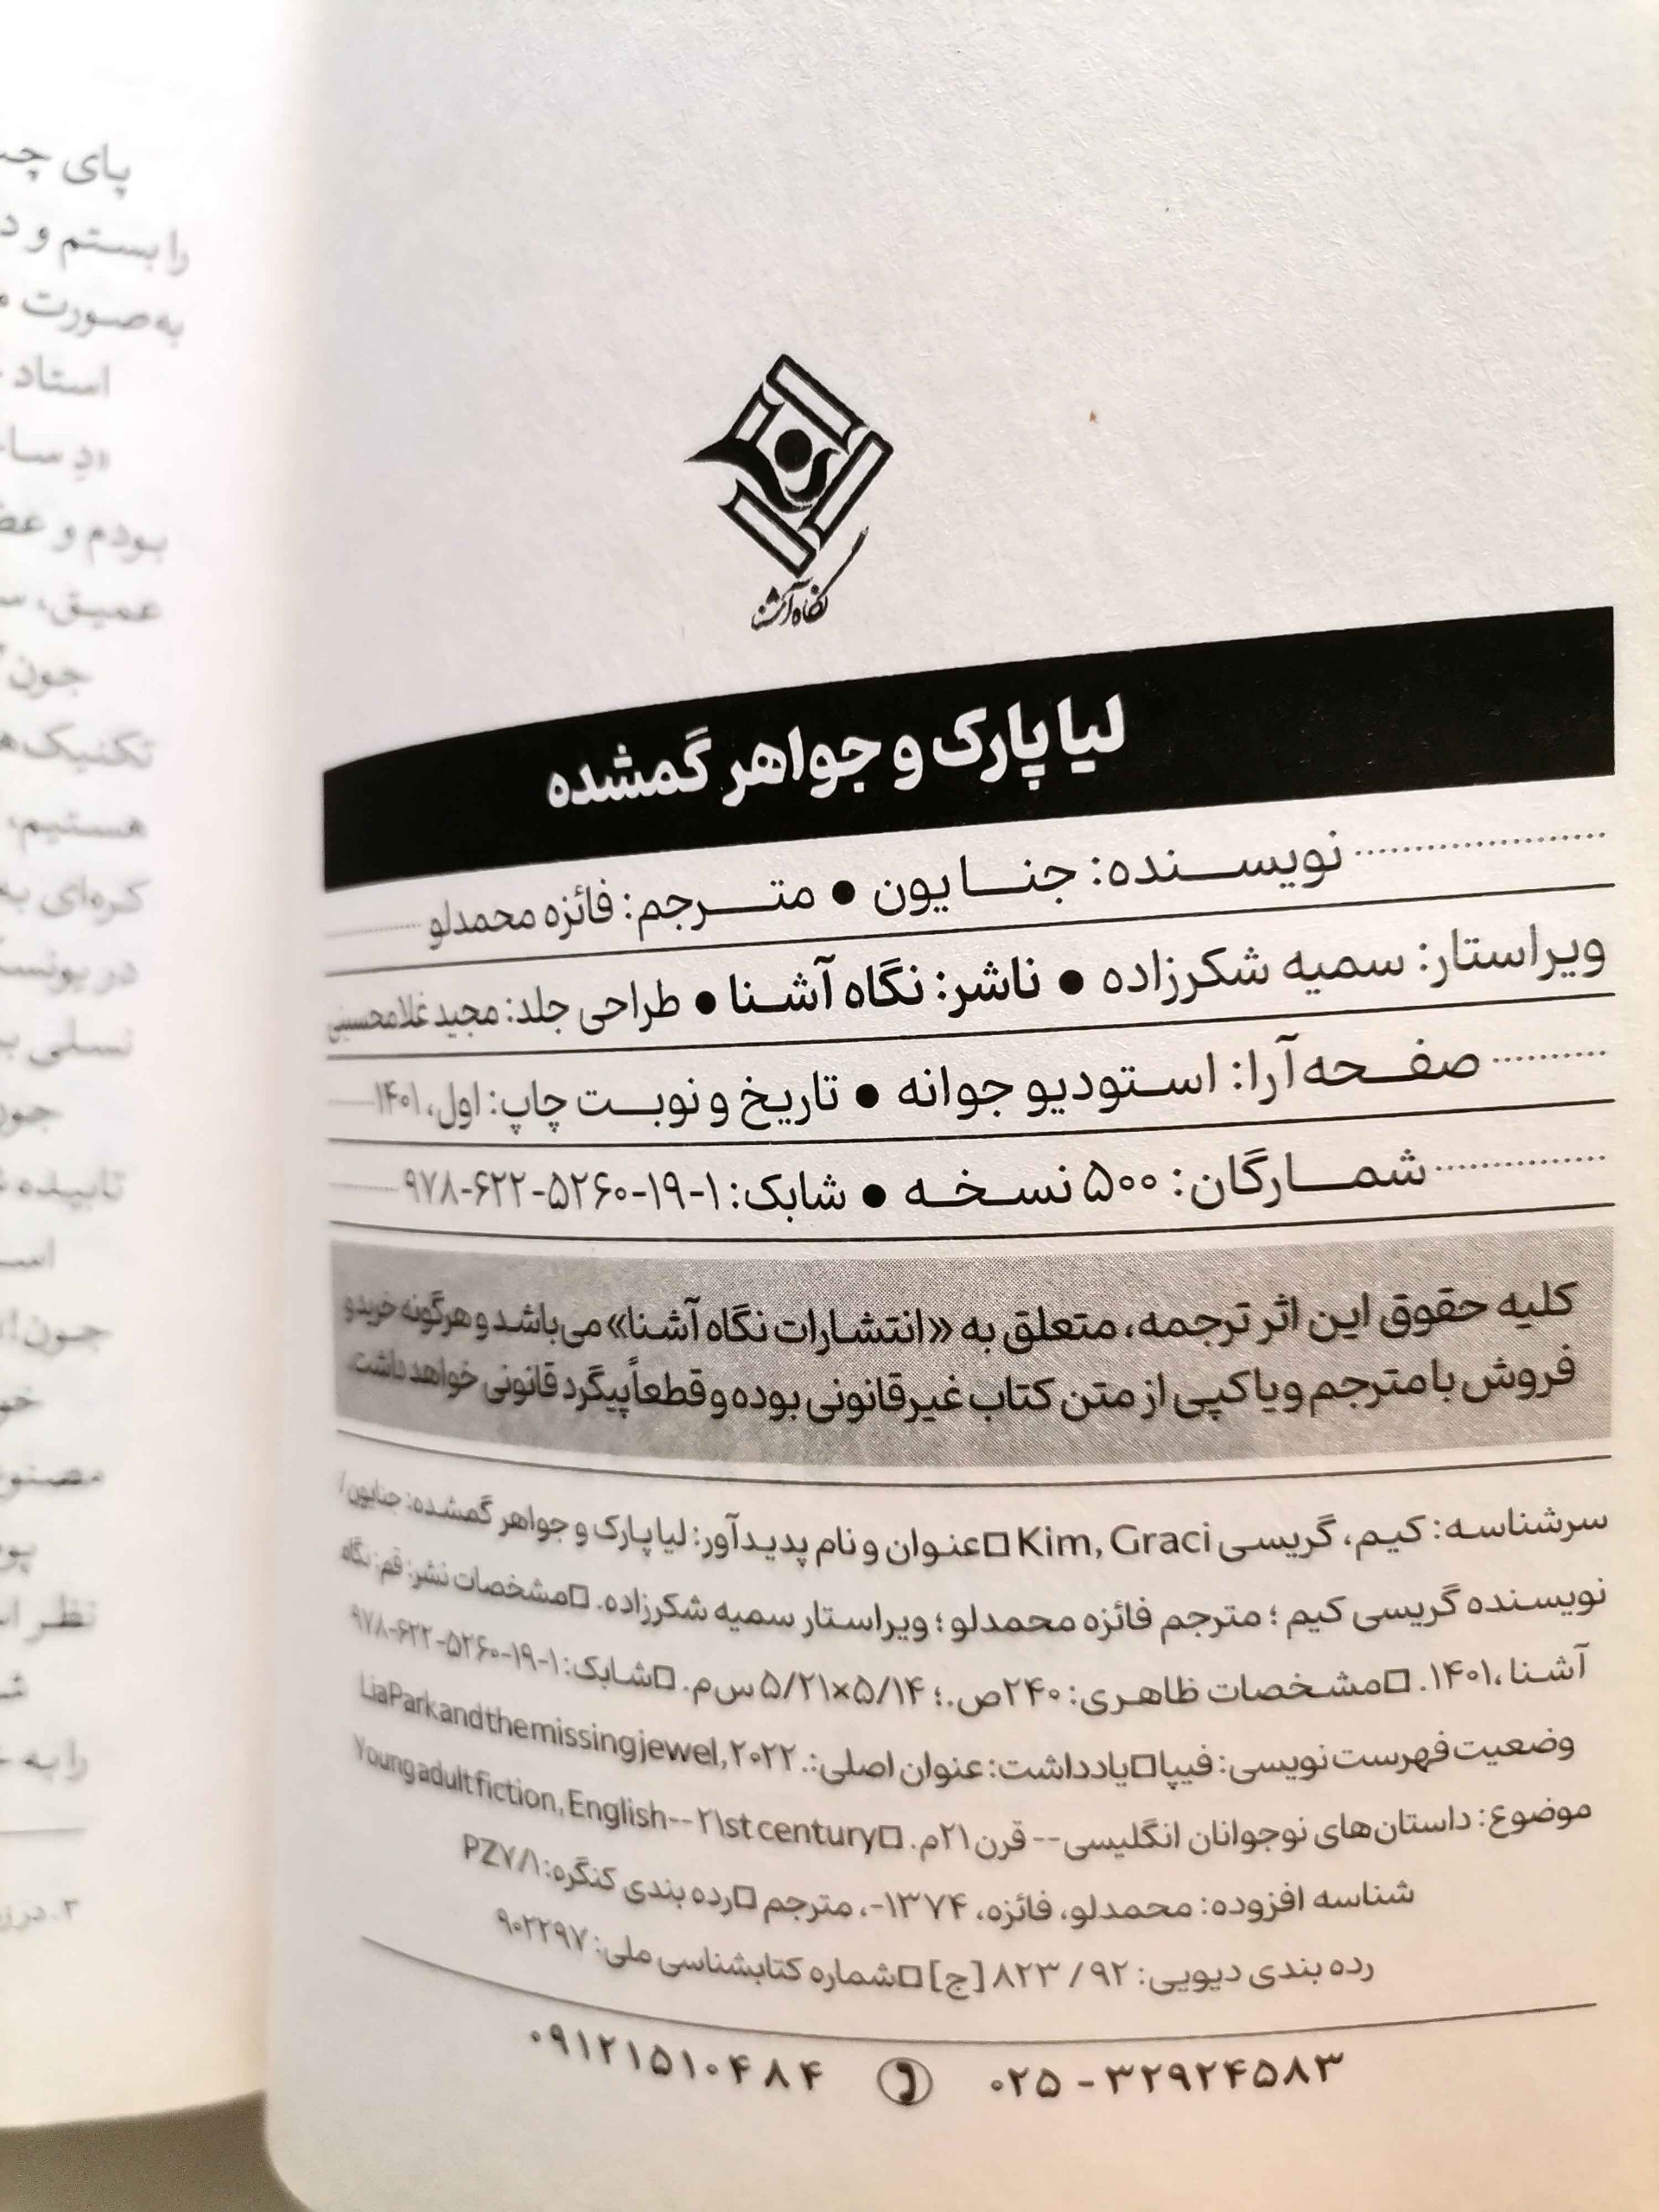 نگاه آشنا
لیا پارک و جواهر گمشده
نویسنده: جنا یون ● مترجم: فائزه محمدلو
ویراستار: سمیه شکرزاده ● ناشر: نگاه آشنا ● طراحی جلد: مجید غلامحسینی
صفحه‌آرا: استودیو جوانه ● تاریخ و نوبت چاپ: اول، ۱۴۰۱
شمارگان: ۵۰۰ نسخه ● شابک: ۱-۱۹-۵۲۶۰-۶۲۲-۹۷۸
کلیه حقوق این اثر ترجمه، متعلق به «انتشارات نگاه آشنا» می‌باشد و هرگونه خرید و
فروش با مترجم و یا کپی از متن کتاب غیرقانونی بوده و قطعاً پیگرد قانونی خواهد داشت.
سرشناسه: کیم، گریسی Kim, Graci □عنوان و نام پدیدآور: لیا پارک و جواهر گمشده: جنایون/
نویسنده گریسی کیم ؛ مترجم فائزه محمدلو ؛ ویراستار سمیه شکرزاده. □مشخصات نشر: قم: نگاه
آشنا ،۱۴۰۱. □مشخصات ظاهری: ۲۴۰ص.؛ ۵/۱۴×۵/۲۱ س‌م. □شابک: ۱-۱۹-۵۲۶۰-۶۲۲-۹۷۸
وضعیت فهرست نویسی: فیپا□یادداشت: عنوان اصلی:. Lia Park and the missing jewel, ۲۰۲۲
موضوع: داستان‌های نوجوانان انگلیسی-- قرن ۲۱م. □Young adult fiction, English-- ۲۱st century
شناسه افزوده: محمدلو، فائزه، ۱۳۷۴-، مترجم □رده بندی کنگره: PZ۷/۱
رده بندی دیویی: ۹۲ / ۸۲۳ [ج] □شماره کتابشناسی ملی: ۹۰۲۲۹۷
۰۲۵ - ۳۲۹۲۴۵۸۳ ۰۹۱۲۱۵۱۰۴۸۴
پای
را بستم و
به‌صورت
استاد
بودم و
عمیق،
جون
هستیم،
کره‌ای
در
نسلی
جون
تابیده
جون!
را به